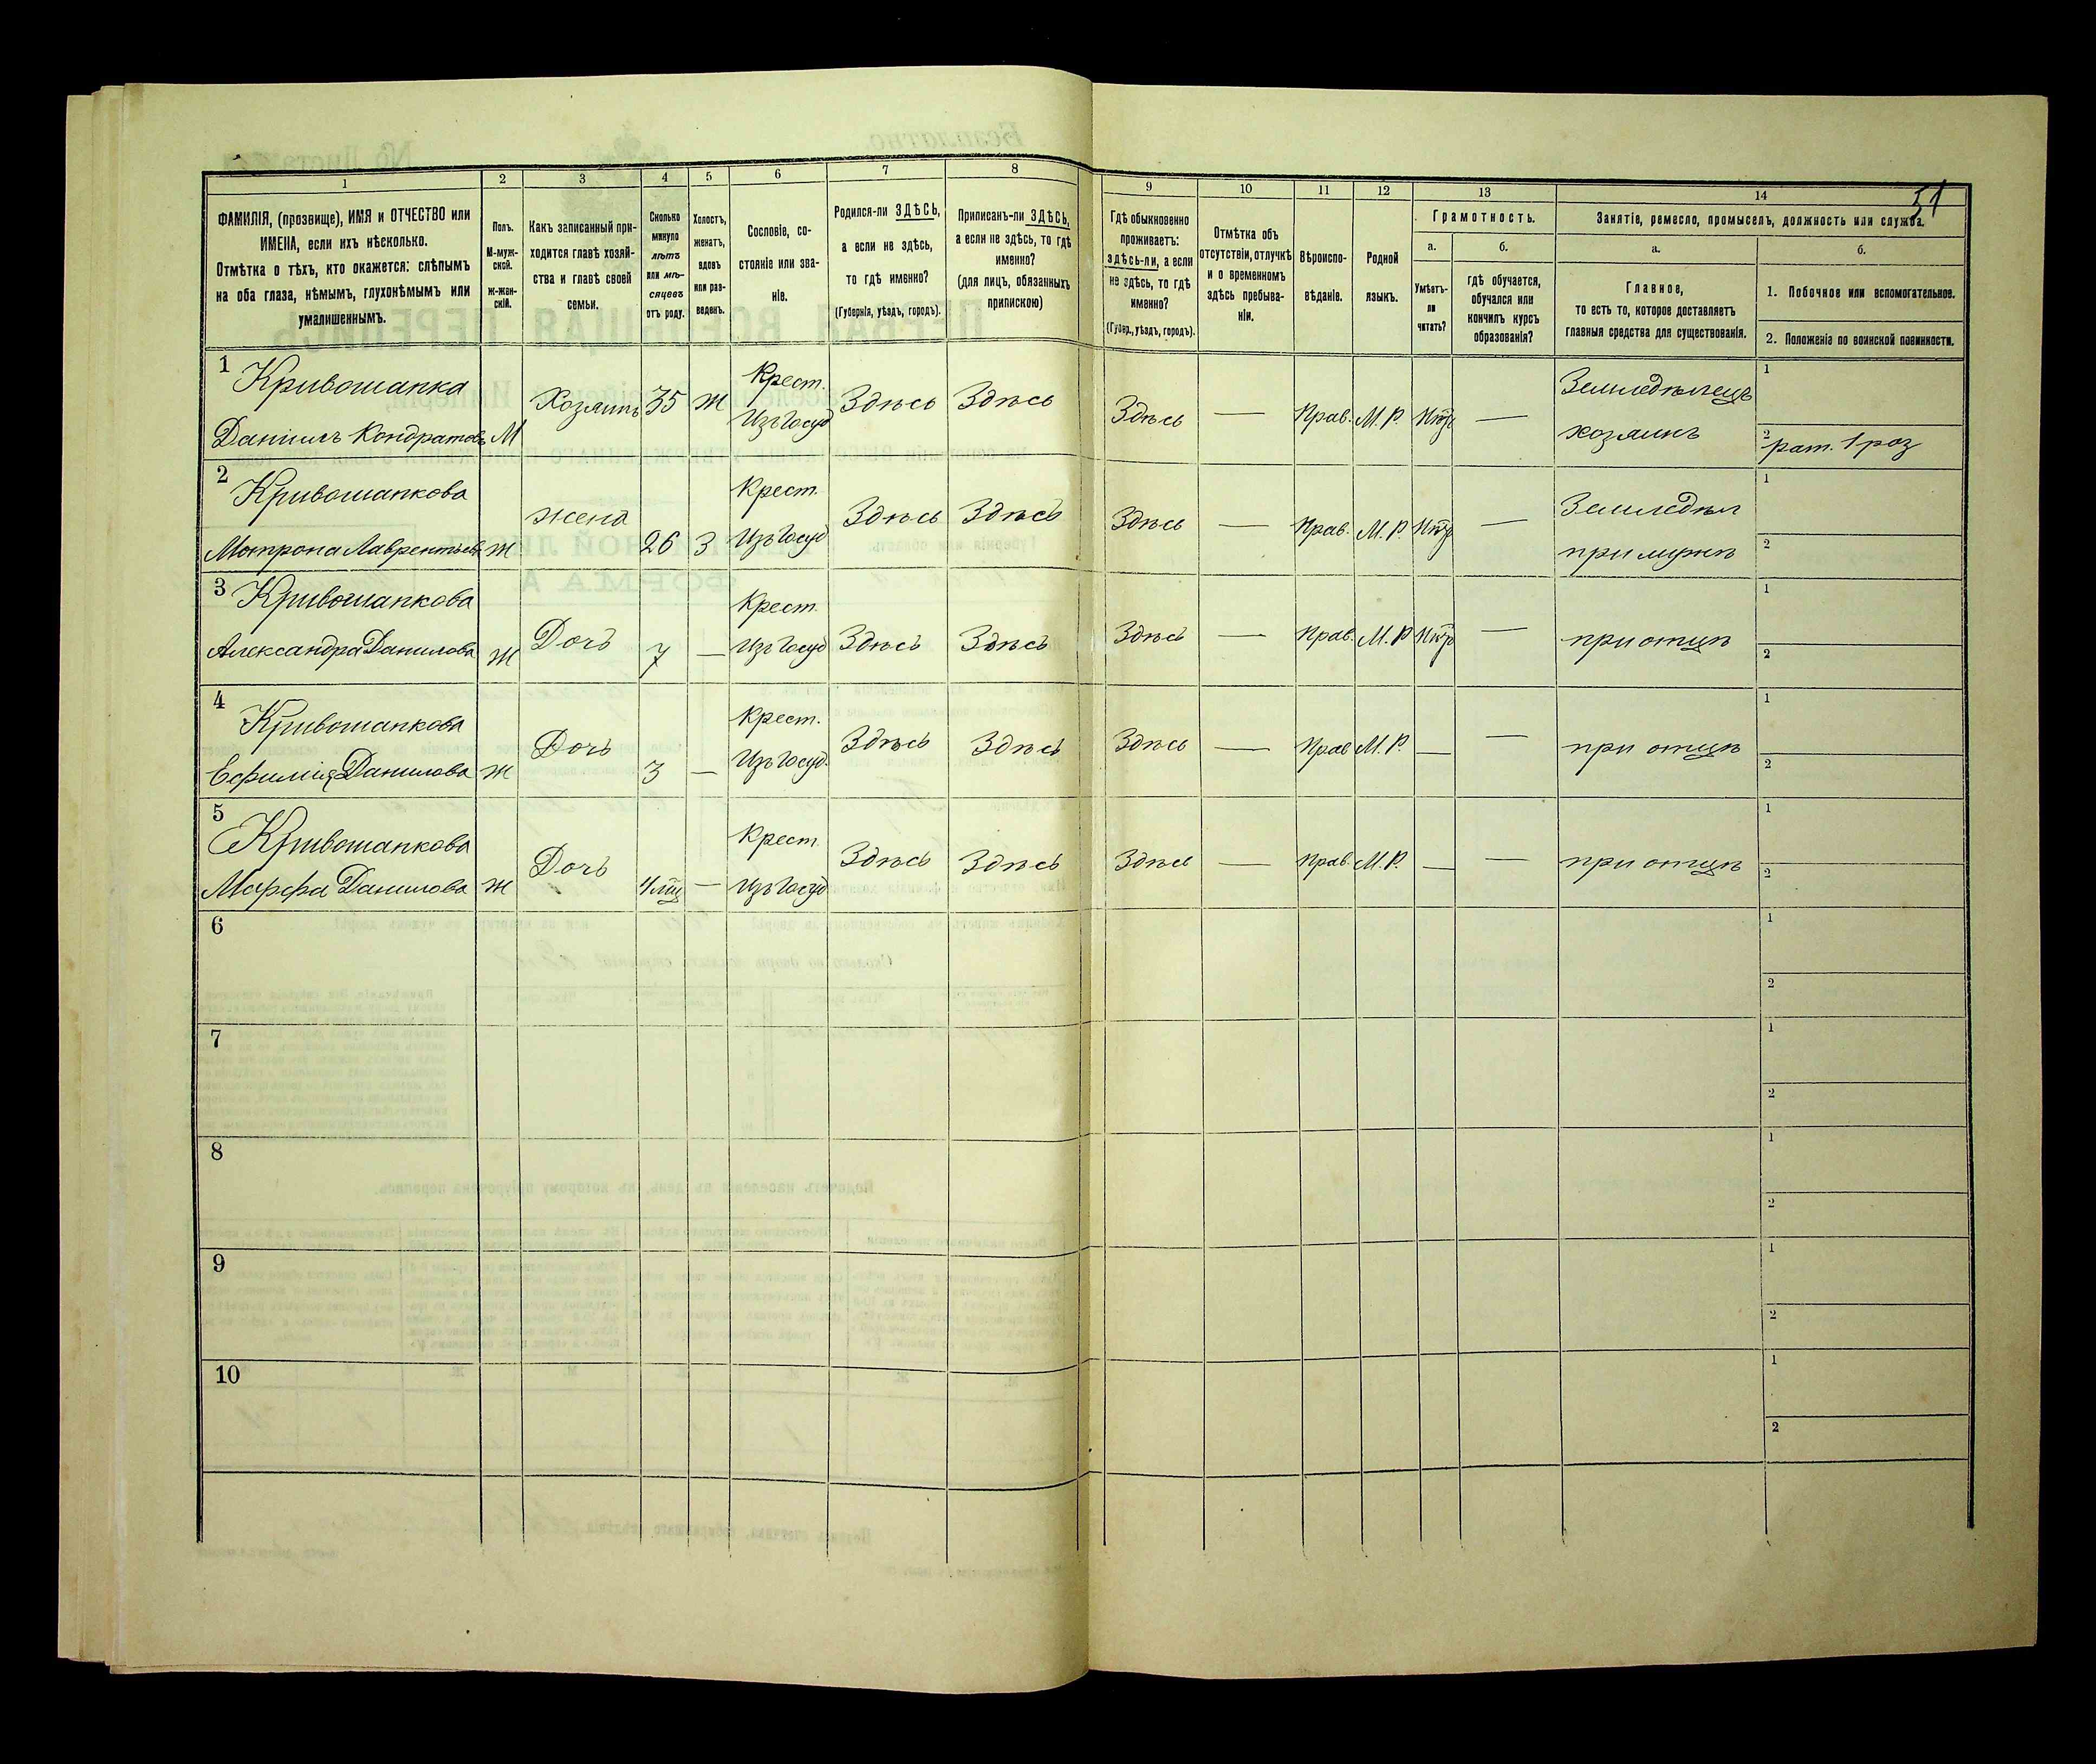 51
1 2 3 4 5 6 7 8 9 10 11 12 13 14
ФАМИЛІЯ, (прозвище), ИМЯ и ОТЧЕСТВО или
ИМЕНА, если ихъ нѣсколько.
Отмѣтка о тѣхъ, кто окажется: слѣпымъ
на оба глаза, нѣмымъ, глухонѣмымъ или
умалишеннымъ.
Полъ.
М-муж-
ской.
ж-жен-
скій.
Какъ записанный при-
ходится главѣ хозяй-
ства и главѣ своей
семьи.
Сколько
минуло
лѣтъ
или мѣ-
сяцевъ
отъ роду.
Холостъ,
женатъ,
вдовъ
или раз-
веденъ.
Сословіе, со-
стояніе или зва-
ніе.
Родился-ли ЗДѢСЬ,
а если не здѣсь,
то гдѣ именно?
(Губернія, уѣздъ, городъ).
Приписанъ-ли ЗДѢСЬ,
а если не здѣсь, то гдѣ
именно?
(для лицъ, обязанныхъ
припискою)
Гдѣ обыкновенно
проживаетъ:
здѣсь-ли, а если
не здѣсь, то гдѣ
именно?
(Губер., уѣздъ, городъ).
Отмѣтка объ
отсутствіи, отлучкѣ
и о временномъ
здѣсь пребыва-
ніи.
Вѣроиспо-
вѣданіе.
Родной
языкъ.
Грамотность.
а.
Умѣетъ-
ли
читать?
б.
гдѣ обучается,
обучался или
кончилъ курсъ
образованія?
Занятіе, ремесло, промыселъ, должность или служба.
а.
Главное,
то есть то, которое доставляетъ
главныя средства для существованія.
б.
1. Побочное или вспомогательное.
2. Положеніе по воинской повинности.
1 Кривошапка Крест. Земледѣлецъ 1
Даніилъ Кондратовъ М Хозяинъ 35 Ж Изъ Госуд Здѣсь Здѣсь Здѣсь — Прав. М. Р. — хозяинъ 2 рат. 1 роз
2 Кривошапкова Крест. Земледѣл 1
Мотрона Лаврентьева Ж жена 26 З Изъ Госуд Здѣсь Здѣсь Здѣсь — Прав. М. Р. — при мужѣ 2
3 Кривошапкова Крест. 1
Александра Данилова Ж Дочь 7 — Изъ Госуд Здѣсь Здѣсь Здѣсь — Прав. М. Р — при отцѣ 2
4 Кривошапкова Крест. 1
Ефимія Данилова Ж Дочь 3 — Изъ Госуд. Здѣсь Здѣсь Здѣсь — Прав М. Р. — — при отцѣ 2
5 Кривошапкова Крест 1
Марфа Данилова Ж Дочь — Изъ Госуд Здѣсь Здѣсь Здѣсь — Прав. М. Р. — — при отцѣ 2
6 1
2
7 1
2
8 1
2
9 1
2
10 1
2